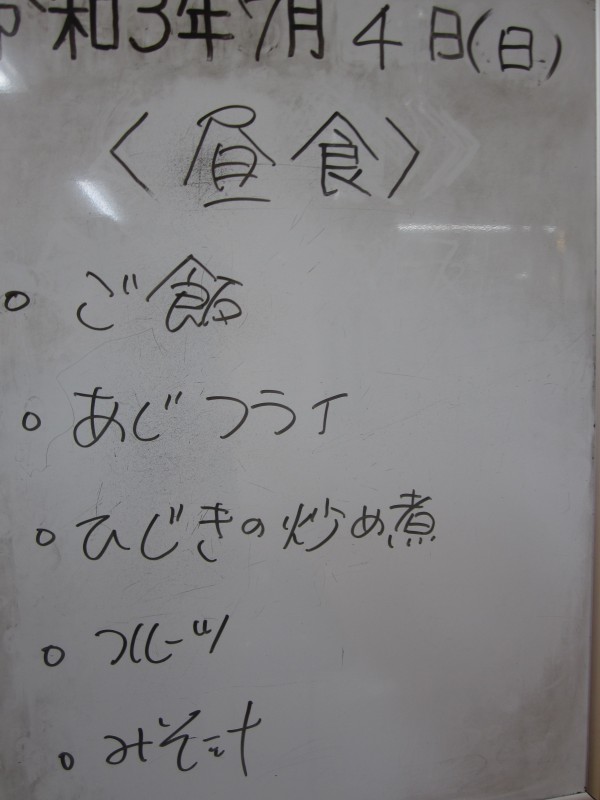 令和3年7月4日(日)
〈昼食〉
○ ご飯
○ あじフライ
○ ひじきの炒め煮
○ フルーツ
○ みそ汁